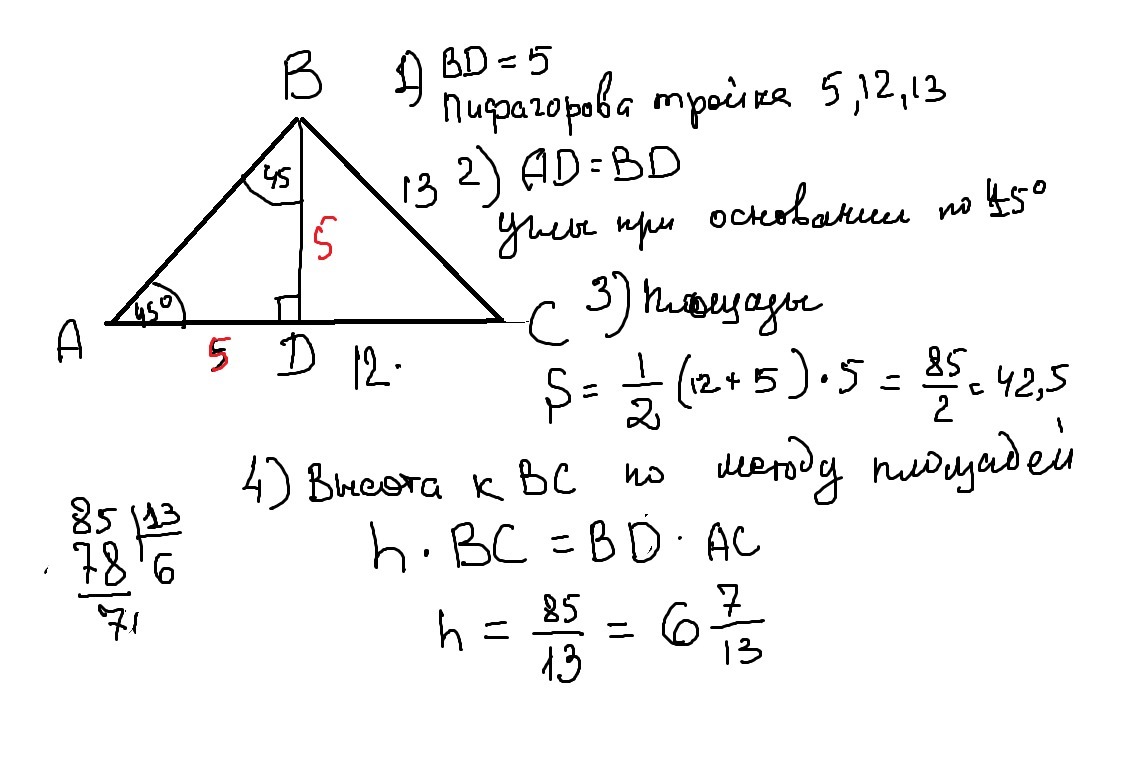 B
1) BD = 5
Пифагорова тройка 5,12,13
45
13
2) AD = BD
углы при основании по 45°
5
45°
A
5
D
12.
C
3) Площадь
S = 1/2 (12 + 5) · 5 = 85/2 = 42,5
4) Высота к BC по методу площадей
85 | 13
78 | 6
7
h · BC = BD · AC
h = 85/13 = 6 7/13